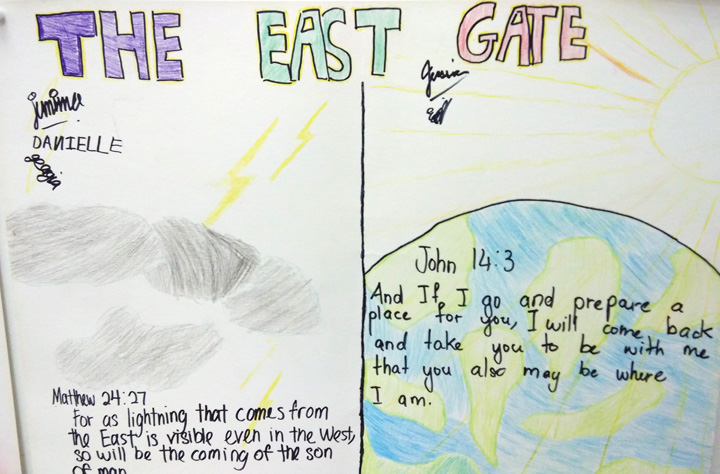 THE EAST GATE
DANIELLE
John 14:3
And If I go and prepare a
place for you, I will come back
and take you to be with me
that you also may be where
I am.
Matthew 24:27
For as lightning that comes from
the East is visible even in the West,
so will be the coming of the son
of man